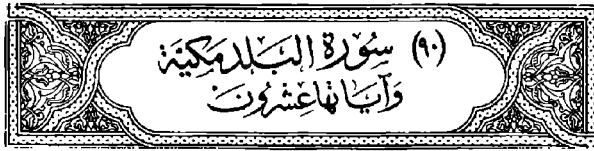 (٩٠) سُورَةُ الْبَلَدِ مَكِّيَّة
وَآيَاتُهَا عِشْرُونَ